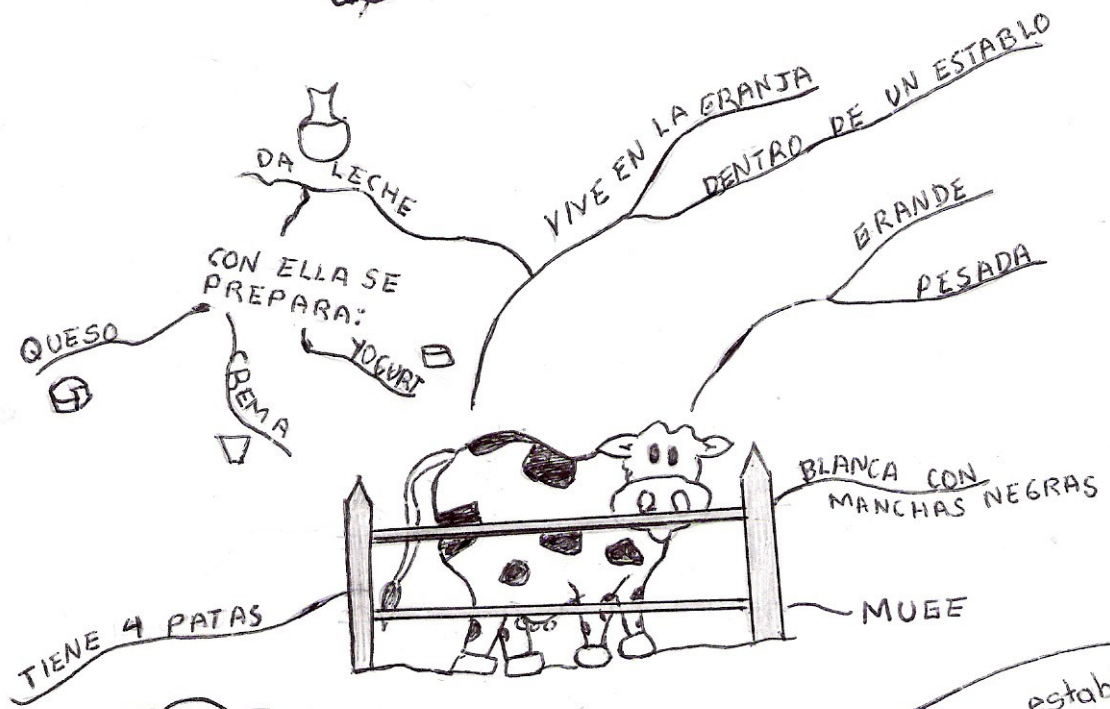 DA LECHE
CON ELLA SE
PREPARA:
QUESO
CREMA
YOGURT
VIVE EN LA GRANJA
DENTRO DE UN ESTABLO
GRANDE
PESADA
BLANCA CON
MANCHAS NEGRAS
MUGE
TIENE 4 PATAS
estab